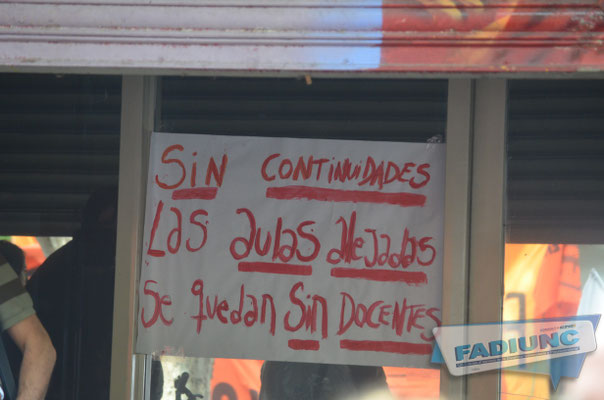 Sin CONTINUIDADES
Las aulas alejadas
Se quedan Sin DOCENTES
FADIUNC